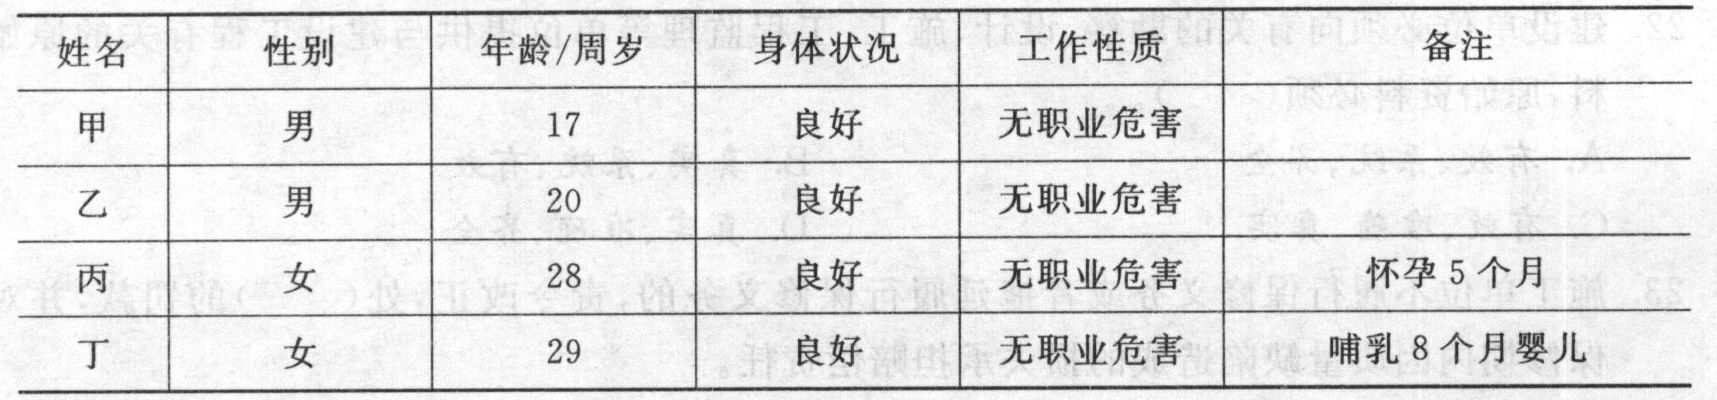 姓名 性别 年龄/周岁 身体状况 工作性质 备注
甲 男 17 良好 无职业危害
乙 男 20 良好 无职业危害
丙 女 28 良好 无职业危害 怀孕5个月
丁 女 29 良好 无职业危害 哺乳8个月婴儿